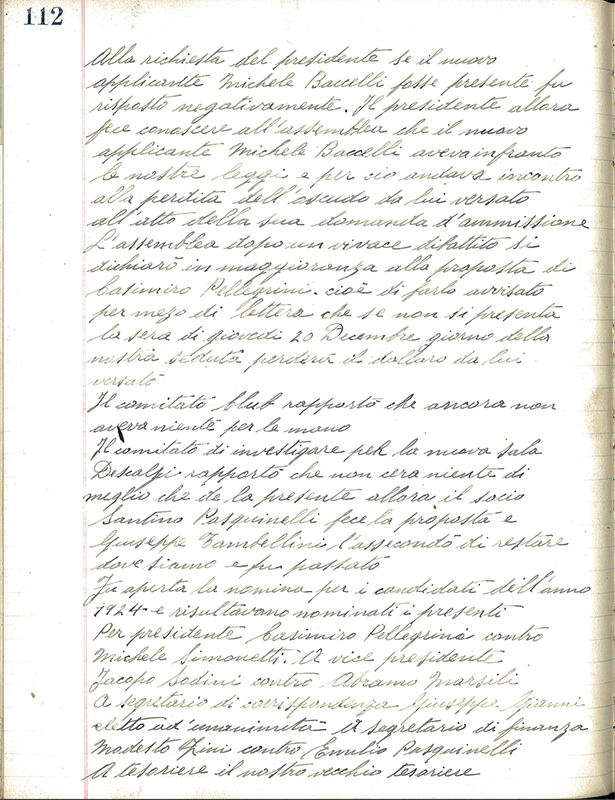 112
Alla richiesta del presidente se il nuovo
applicante Michele Baccelli fosse presente fu
risposto negativamente. Il presidente allora
fece conoscere all'assemblea che il nuovo
applicante Michele Baccelli aveva infranto
le nostre leggi e per cio andava incontro
alla perdita dell'oscudo da lui versato
all'atto della sua domanda d'ammissione
L'assemblea dopo un vivace dibattito si
dichiarò in maggioranza alla proposta di
Casimiro Pellegrini. cioè di farlo avvisato
per mezo di lettera che se non si presenta
la sera di giovedi 20 Decembre giorno della
nostra seduta perderà il dollaro da lui
versato
Il comitato Club rapportò che ancora non
aveva niente per le mano
Il comitato di investigare per la nuova sala
Descalzi rapportò che non cera niente di
meglio che de la presente allora il socio
Santino Pasquinelli fece la proposta e
Giuseppe Tambellini l'assecondò di restare
dove siamo e fu passato
Fu aperta la nomina per i candidati dell'anno
1924 e risultavano nominati i presenti
Per presidente Casimiro Pellegrini contro
Michele Simonetti. A vice presidente
Jacopo Sodini contro Abramo Marsili
A segretario di corrispondenza Giuseppe Gianni
eletto ad'unanimità A segretario di finanza
Modesto Lini contro Emilio Pasquinelli
A tesoriere il nostro vecchio tesoriere